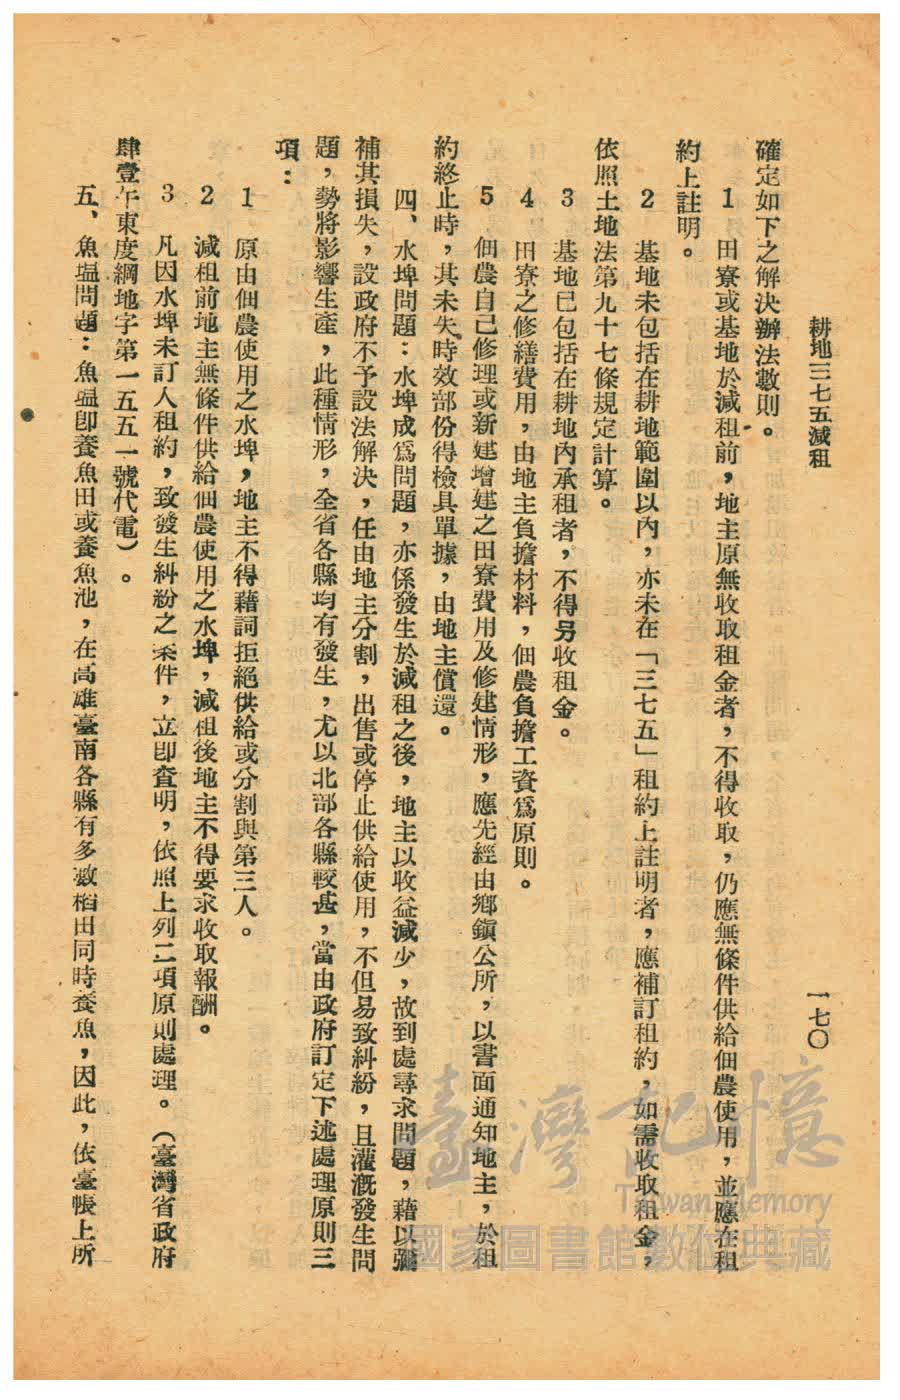 耕地三七五減租
一七〇
確定如下之解決辦法數則。
1 田寮或基地於減租前，地主原無收取租金者，不得收取，仍應無條件供給佃農使用，並應在租
約上註明。
2 基地未包括在耕地範圍以內，亦未在「三七五」租約上註明者，應補訂租約，如需收取租金，
依照土地法第九十七條規定計算。
3 基地已包括在耕地內承租者，不得另收租金。
4 田寮之修繕費用，由地主負擔材料，佃農負擔工資爲原則。
5 佃農自己修理或新建增建之田寮費用及修建情形，應先經由鄉鎮公所，以書面通知地主，於租
約終止時，其未失時效部份得檢具單據，由地主償還。
四、水埤問題：水埤成爲問題，亦係發生於減租之後，地主以收益減少，故到處尋求問題，藉以彌
補其損失，設政府不予設法解決，任由地主分割，出售或停止供給使用，不但易致糾紛，且灌漑發生問
題，勢將影響生產，此種情形，全省各縣均有發生，尤以北部各縣較甚，當由政府訂定下述處理原則三
項：
1 原由佃農使用之水埤，地主不得藉詞拒絕供給或分割與第三人。
2 減租前地主無條件供給佃農使用之水埤，減租後地主不得要求收取報酬。
3 凡因水埤未訂入租約，致發生糾紛之案件，立即查明，依照上列二項原則處理。（臺灣省政府
肆壹午東度綱地字第一五五一號代電）。
五、魚塭問題：魚塭卽養魚田或養魚池，在高雄臺南各縣有多數稻田同時養魚，因此，依臺帳上所
臺灣記憶
Taiwan Memory
國家圖書館數位典藏